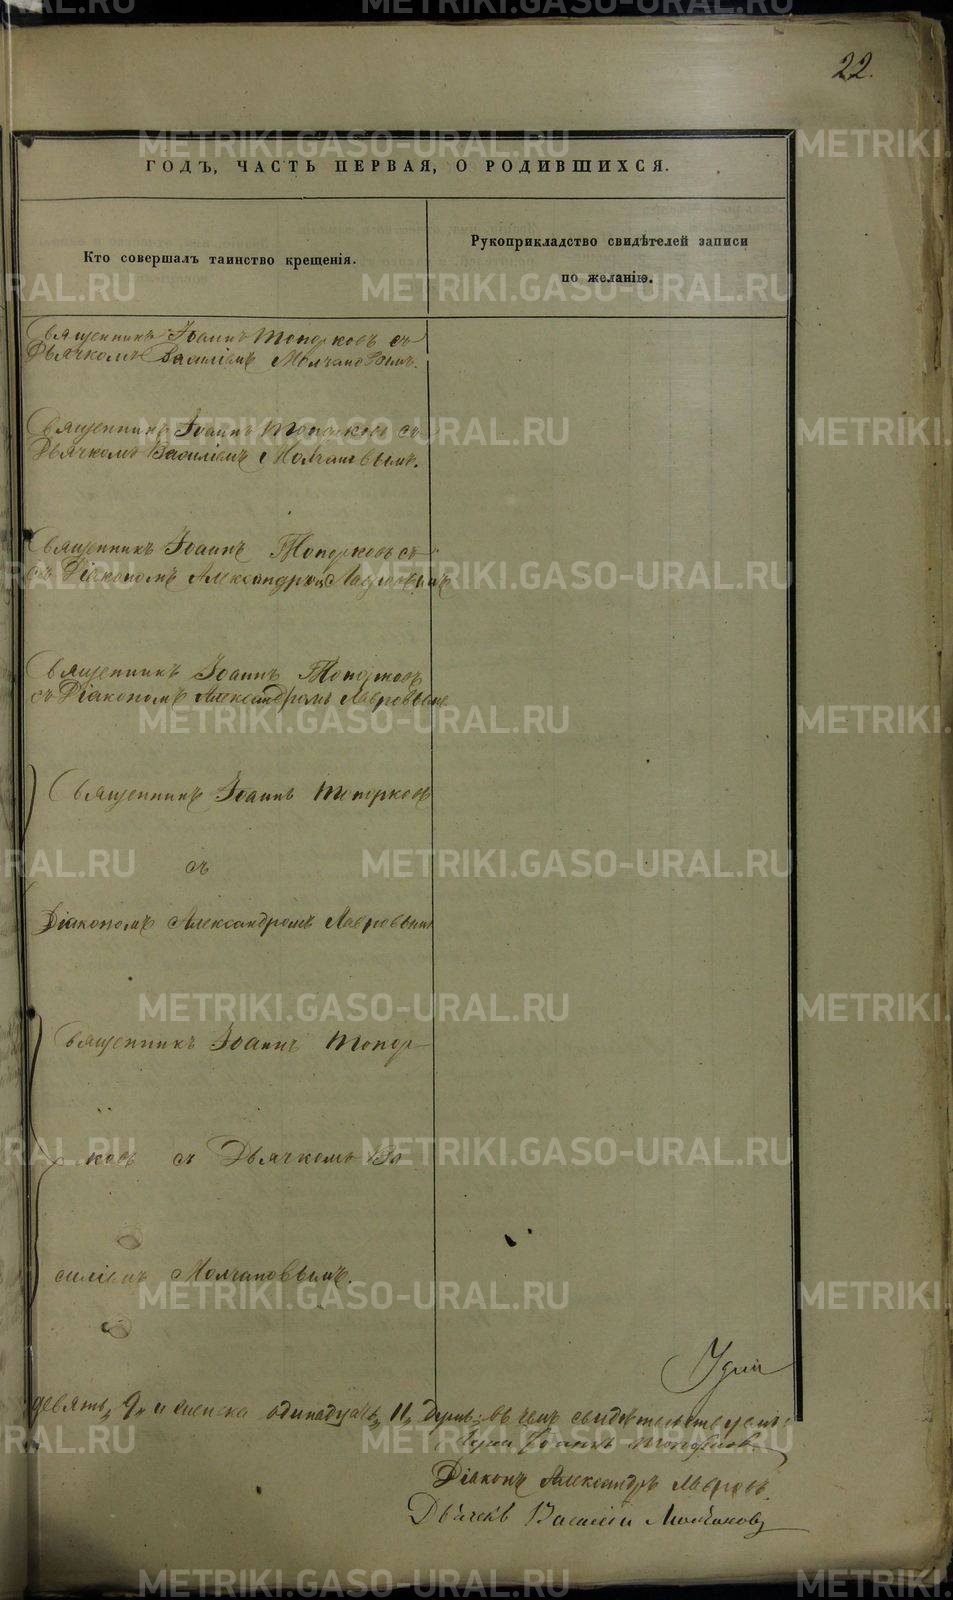 22.
ГОДЪ, ЧАСТЬ ПЕРВАЯ, О РОДИВШИХСЯ.
Кто совершалъ таинство крещенія.
Рукоприкладство свидѣтелей записи
по желанію.
Священникъ Іоаннъ Топорковъ съ
Дьячкомъ Василіемъ Молчановымъ.
Священникъ Іоаннъ Топорковъ съ
Дьячкомъ Василіемъ Молчановымъ.
Священникъ Іоаннъ Топорковъ съ
съ Діакономъ Александромъ Лавровымъ
Священникъ Іоаннъ Топорковъ
съ Діакономъ Александромъ Лавровымъ
Священникъ Іоаннъ Топорковъ
съ
Діакономъ Александромъ Лавровымъ
Священникъ Іоаннъ Топор-
ковъ съ Дьячкомъ Ва
силіемъ Молчановымъ.
девять 9 и женска одинадцать 11 душъ; въ чемъ свидѣтельствуемъ:
Іоаннъ Топорковъ
Діаконъ Александръ Лавровъ.
Дьячекъ Василій Молчановъ
METRIKI.GASO-URAL.RU